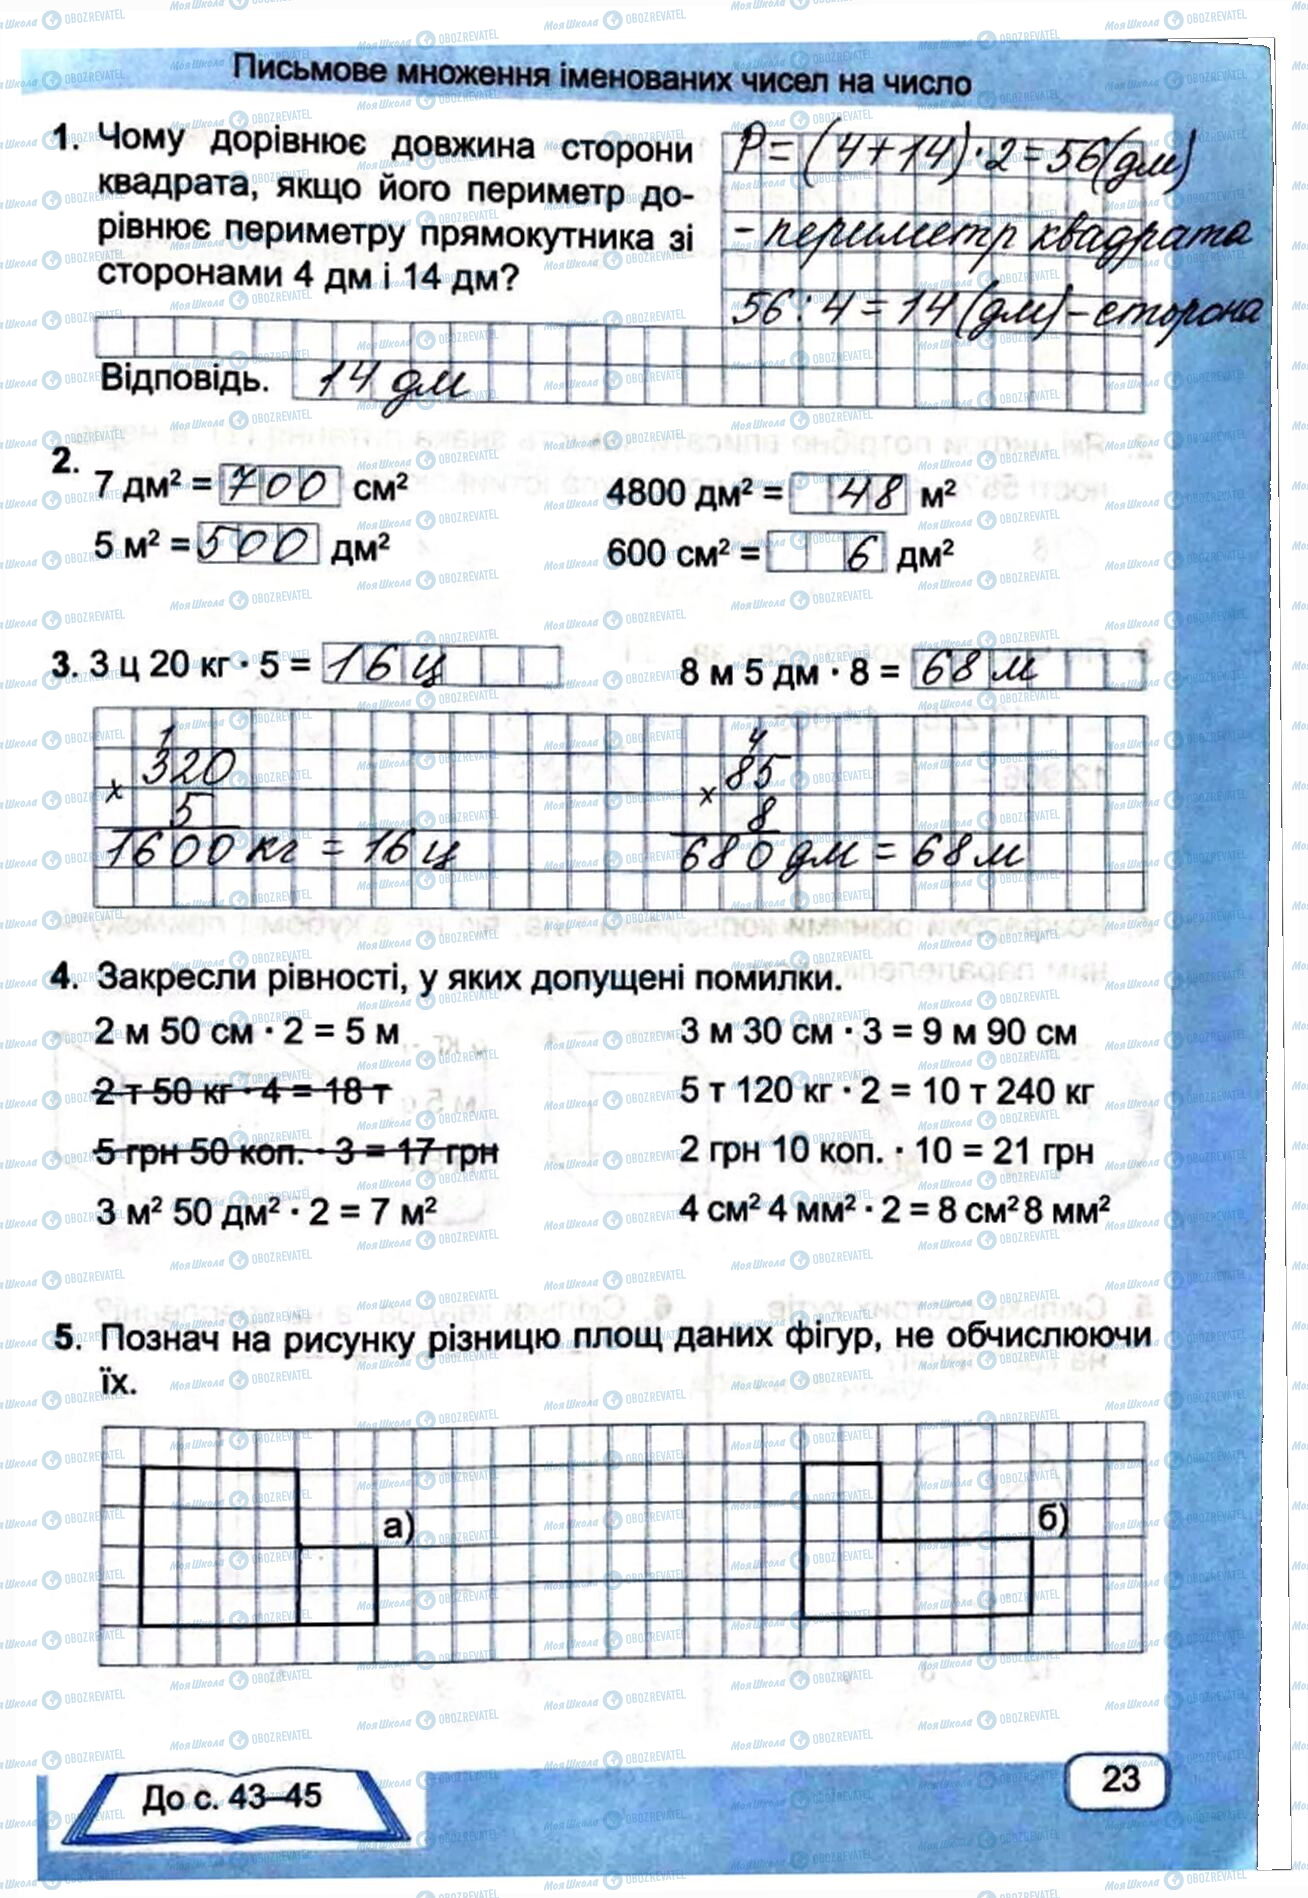 Письмове множення іменованих чисел на число
1. Чому дорівнює довжина сторони
квадрата, якщо його периметр до-
рівнює периметру прямокутника зі
сторонами 4 дм і 14 дм?
P = (4+14)·2=56(дм)
- периметр квадрата
56:4=14(дм)-сторона
Відповідь. 14 дм
2.
7 дм² = 700 см²
4800 дм² = 48 м²
5 м² = 500 дм²
600 см² = 6 дм²
3. 3 ц 20 кг · 5 = 16 ц
8 м 5 дм · 8 = 68 м
1
320
х 5
1600 кг = 16 ц
4
85
х 8
680 дм = 68 м
4. Закресли рівності, у яких допущені помилки.
2 м 50 см · 2 = 5 м
3 м 30 см · 3 = 9 м 90 см
2 т 50 кг · 4 = 18 т
5 т 120 кг · 2 = 10 т 240 кг
5 грн 50 коп. · 3 = 17 грн
2 грн 10 коп. · 10 = 21 грн
3 м² 50 дм² · 2 = 7 м²
4 см² 4 мм² · 2 = 8 см² 8 мм²
5. Познач на рисунку різницю площ даних фігур, не обчислюючи
їх.
а)
б)
До с. 43–45
23
МояШкола OBOZREVATEL